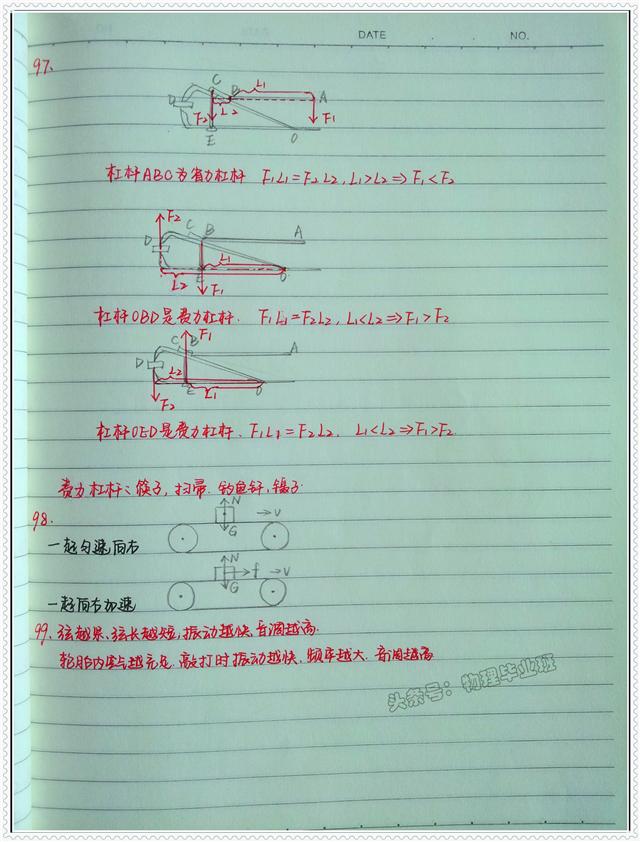 DATE NO.
97.
C
D B L1 A
F2 L2 F1
E O
杠杆ABC为省力杠杆 F1L1=F2L2, L1>L2⇒F1<F2
F2 C B A
D
L1
L2 E O
F1
杠杆OBD是费力杠杆. F1L1=F2L2, L1<L2⇒F1>F2
F1
C B A
D
L2
E L1 O
F2
杠杆OED是费力杠杆. F1L1=F2L2. L1<L2⇒F1>F2.
费力杠杆:筷子,扫帚.钓鱼竿,镊子.
98. N →v
G
一起匀速向右
N f →v
G
一起向右加速
99. 弦越紧、弦长越短,振动越快,音调越高.
轮胎内空气越充足.敲打时振动越快.频率越大.音调越高
头条号:物理毕业班